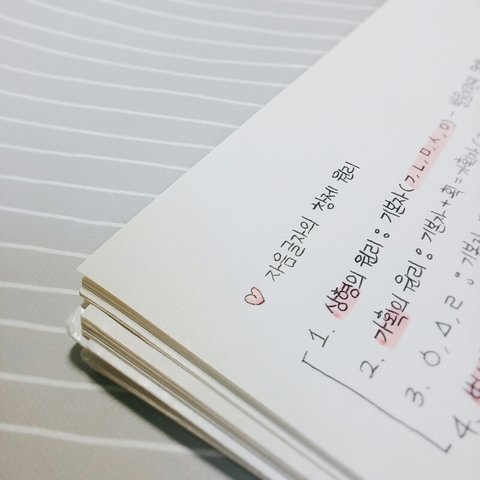 ♡ 자음글자의 창제 원리
1. 상형의 원리 : 기본자 (ㄱ, ㄴ, ㅁ, ㅅ, ㅇ) -
2. 가획의 원리 : 기본자 + 획 = 가획자
3. ㆁ, ㅿ, ㄹ : 기본자
4.